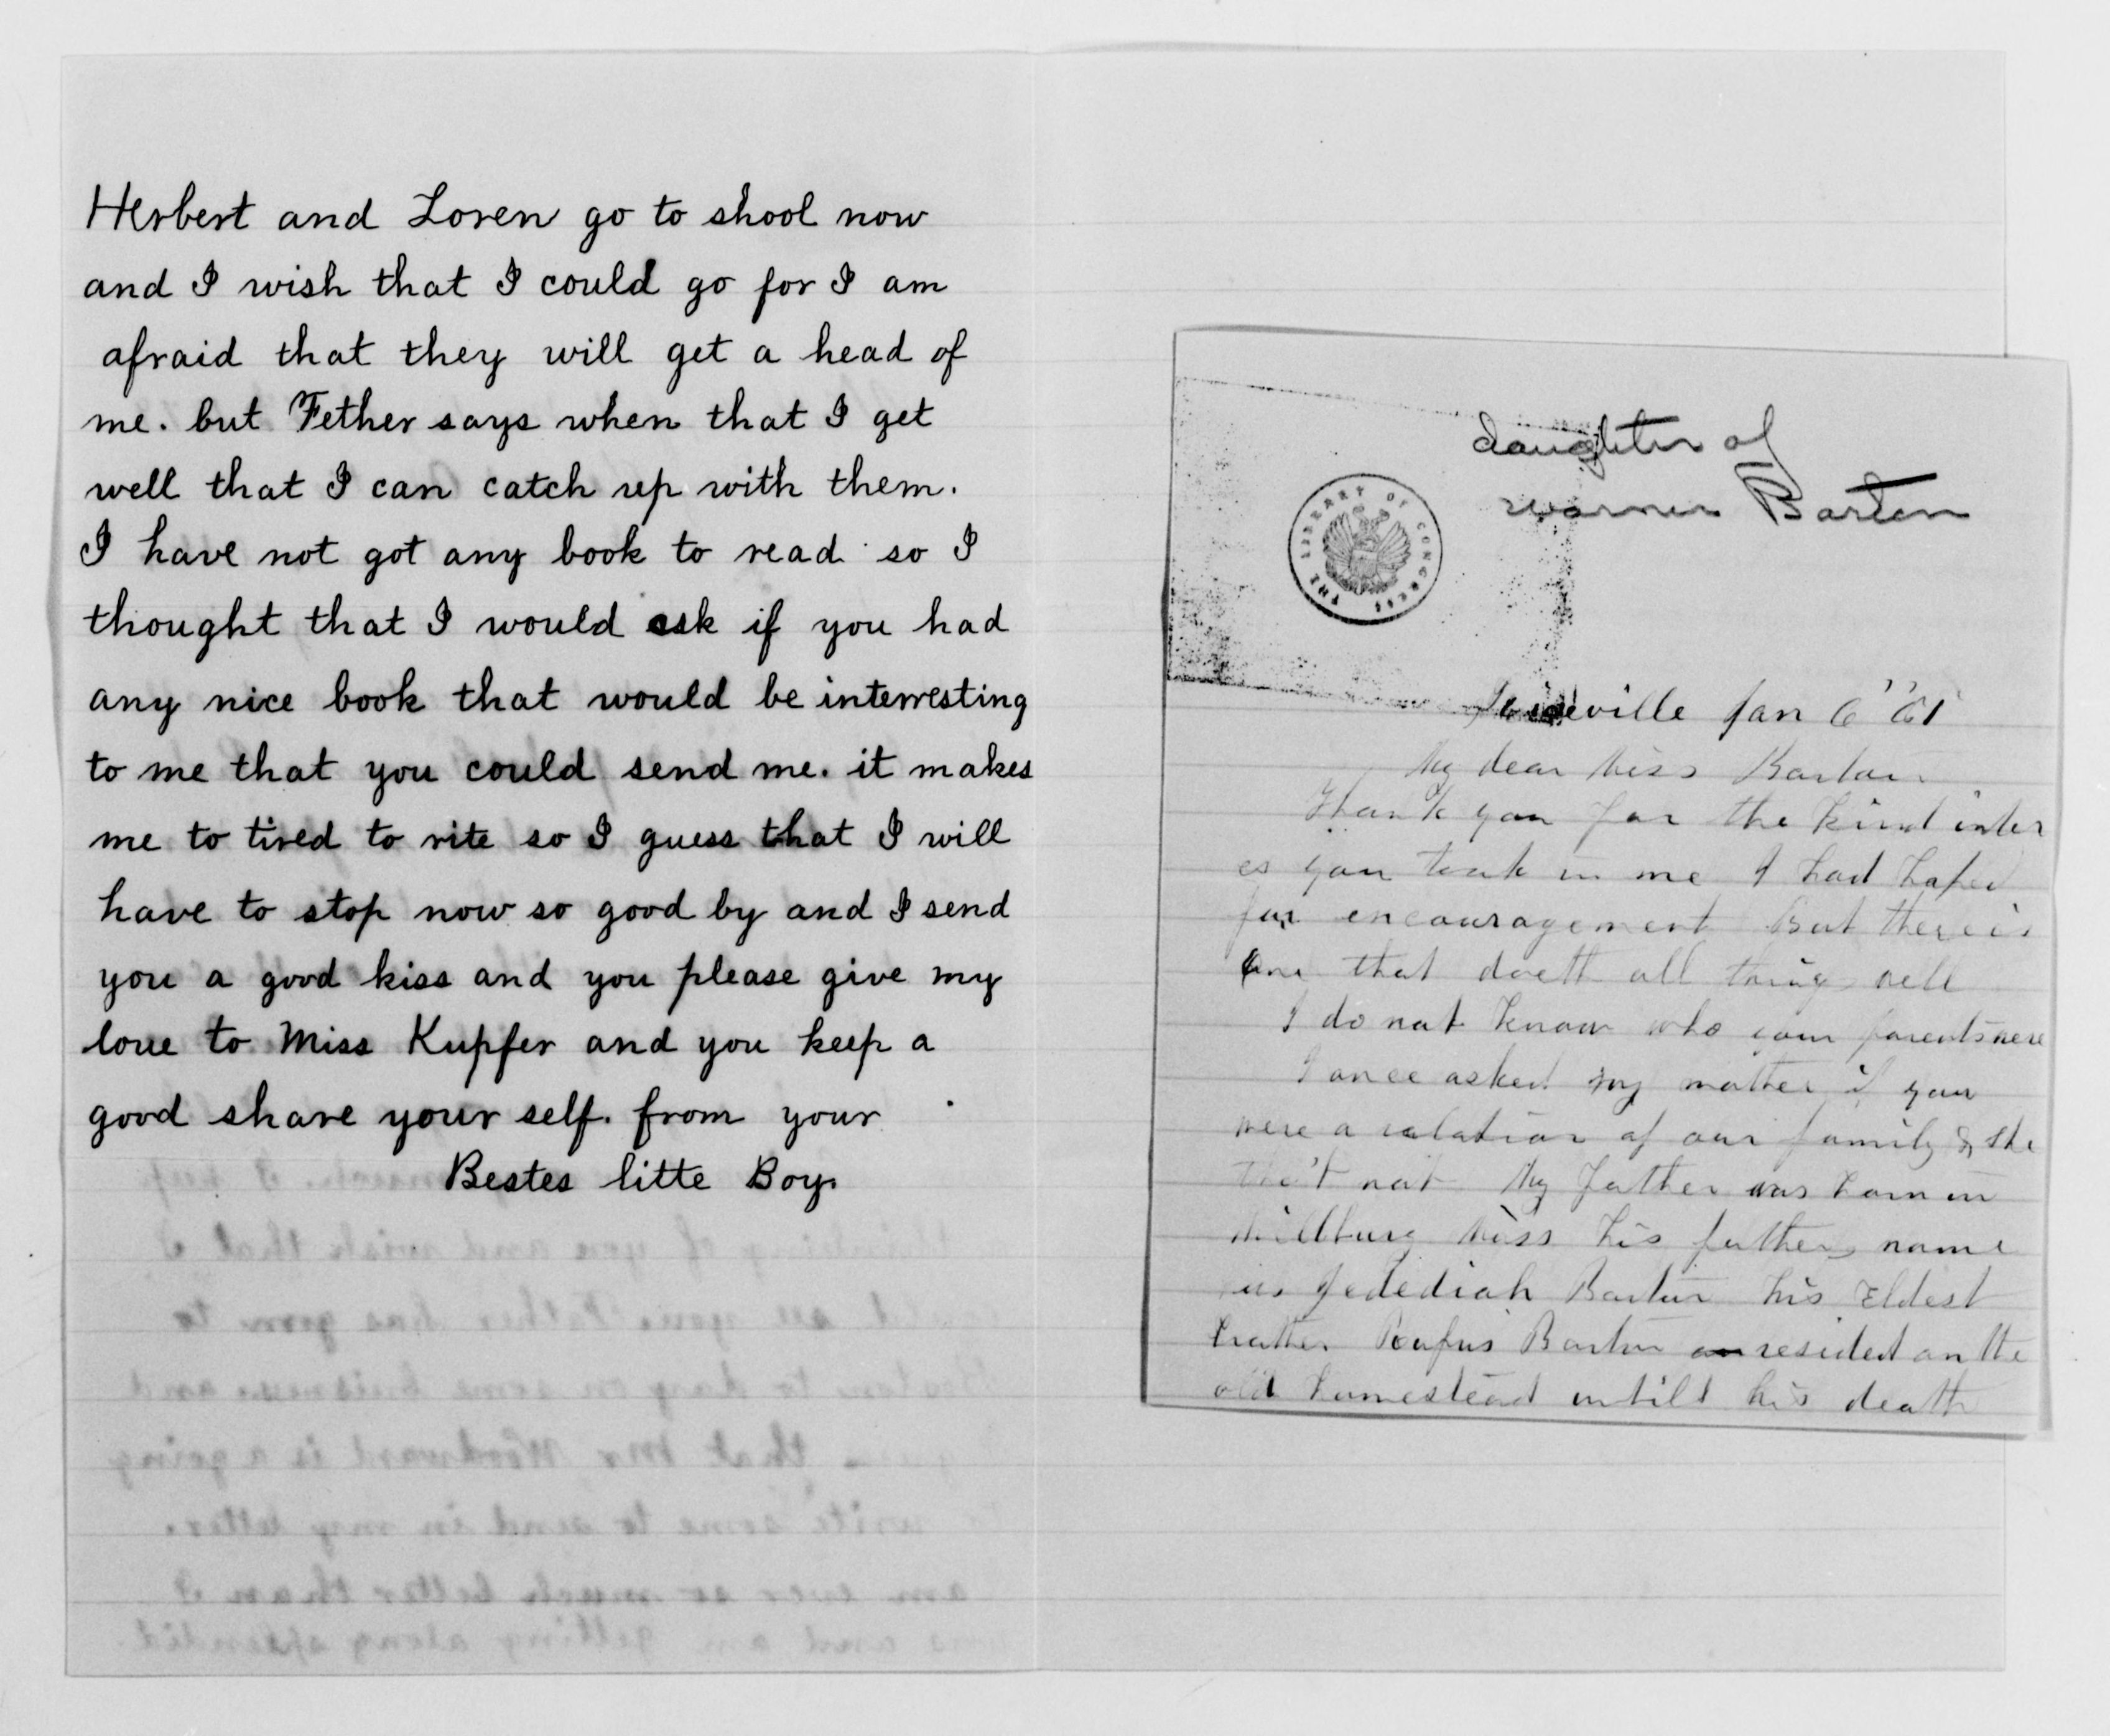 Herbert and Loren go to shool now
and I wish that I could go for I am
afraid that they will get a head of
me. but Fether says when that I get
well that I can catch up with them.
I have not got any book to read so I
thought that I would ask if you had
any nice book that would be interresting
to me that you could send me. it makes
me to tired to rite so I guess that I will
have to stop now so good by and I send
you a good kiss and you please give my
love to Miss Kupfer and you keep a
good share your self. from your
Bestes litte Boy.
daughter of
warner Barton
THE LIBRARY OF CONGRESS
Jan 6"
My dear Miss Barton
Thank you for the kind inter
es you took in me I had hoped
for encouragement But there is
one that doeth all things well
I do not know who your parents were
I once asked my mother if you
were a relation of our family & she
tho't not My father was born in
his fathers name
was Jedediah Barton his Eldest
brother Rufus Barton resided on the
old homestead untill his death